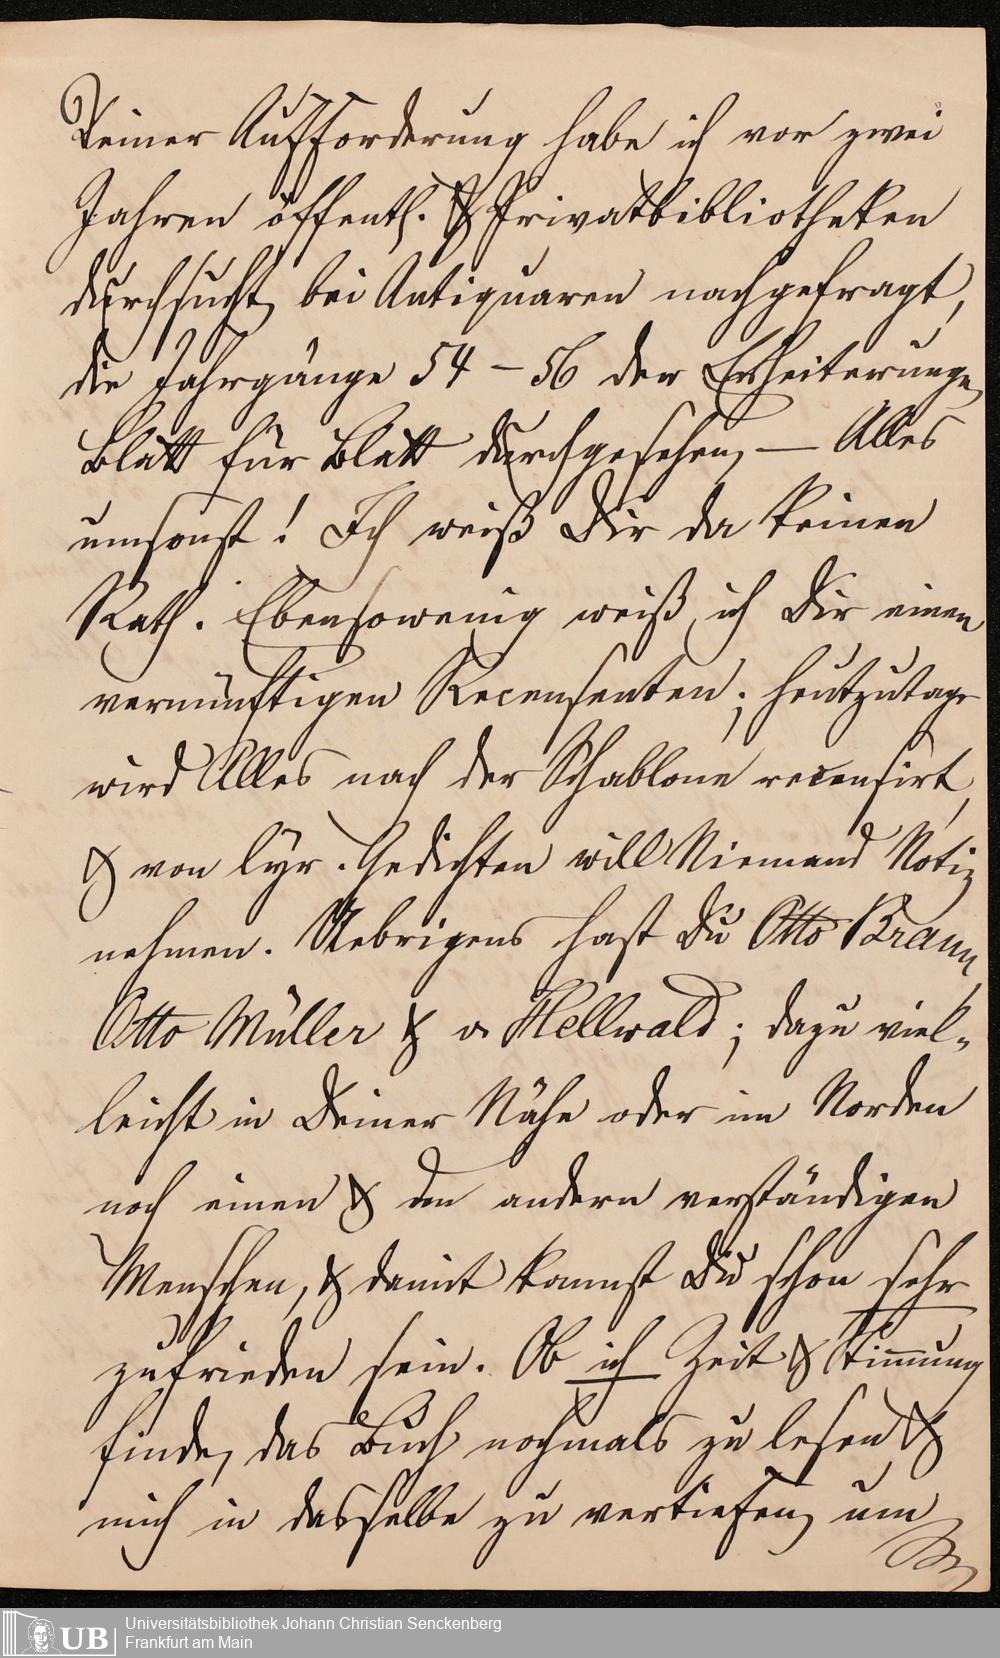 Deiner Aufforderung habe ich vor zwei
Jahren öffentl. & Privatbibliotheken
durchsucht, bei Antiquaren nachgefragt,
die Jahrgänge 54 – 56 der Erheiterungen
Blatt für Blatt durchgesehen, — Alles
umsonst! Ich weiß Dir da keinen
Rath. Ebensowenig weiß ich Dir einen
vernünftigen Recensenten; heutzutage
wird Alles nach der Schablone recensirt,
& von lyr. Gedichten will Niemand Notiz
nehmen. Uebrigens hast Du Otto Braun,
Otto Müller & v. Hellwald; dazu viel-
leicht in Deiner Nähe oder im Norden
noch einen & den andern verständigen
Menschen, & damit kannst Du schon sehr
zufrieden sein. Ob ich Zeit & Stimmung
finde, das Buch nochmals zu lesen &
mich in dasselbe zu vertiefen, um
UB
Universitätsbibliothek Johann Christian Senckenberg
Frankfurt am Main